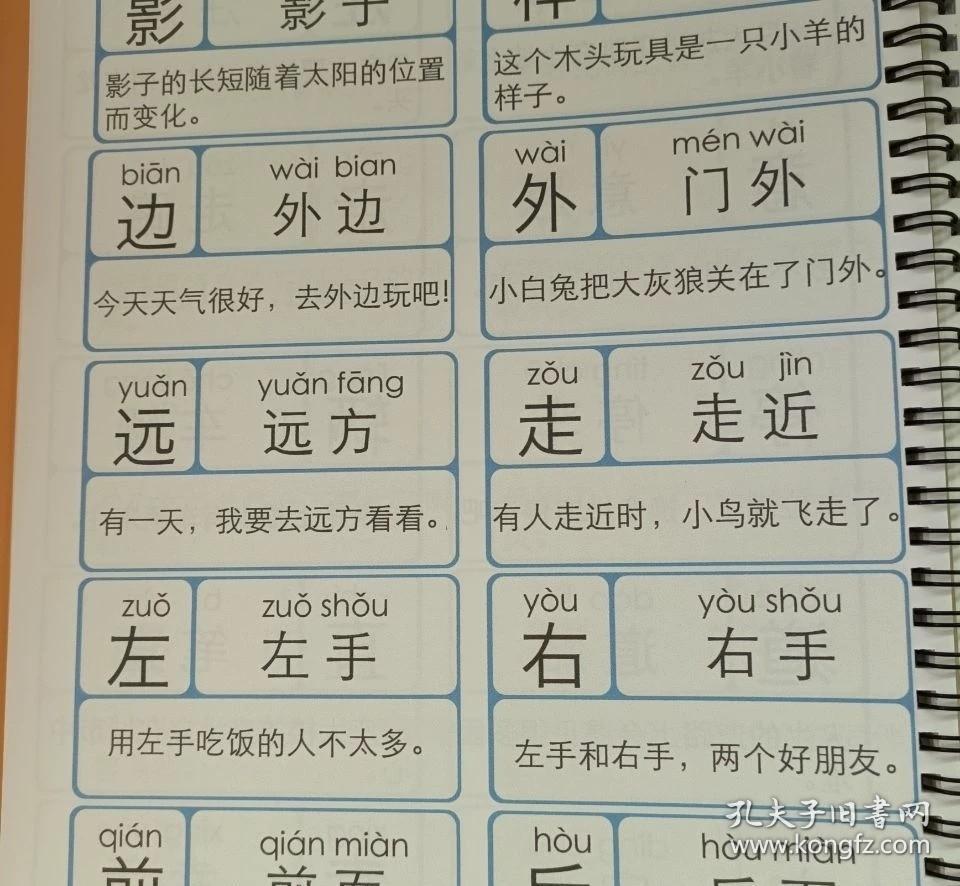 影 影子
样
影子的长短随着太阳的位置
而变化。
这个木头玩具是一只小羊的
样子。
biān wài bian
边 外边
今天天气很好，去外边玩吧!
wài mén wài
外 门外
小白兔把大灰狼关在了门外。
yuǎn yuǎn fāng
远 远方
有一天，我要去远方看看。
zǒu zǒu jìn
走 走近
有人走近时，小鸟就飞走了。
zuǒ zuǒ shǒu
左 左手
用左手吃饭的人不太多。
yòu yòu shǒu
右 右手
左手和右手，两个好朋友。
qián qián miàn
前 前面
hòu hòu miàn
后 后面
孔夫子旧书网
www.kongfz.com